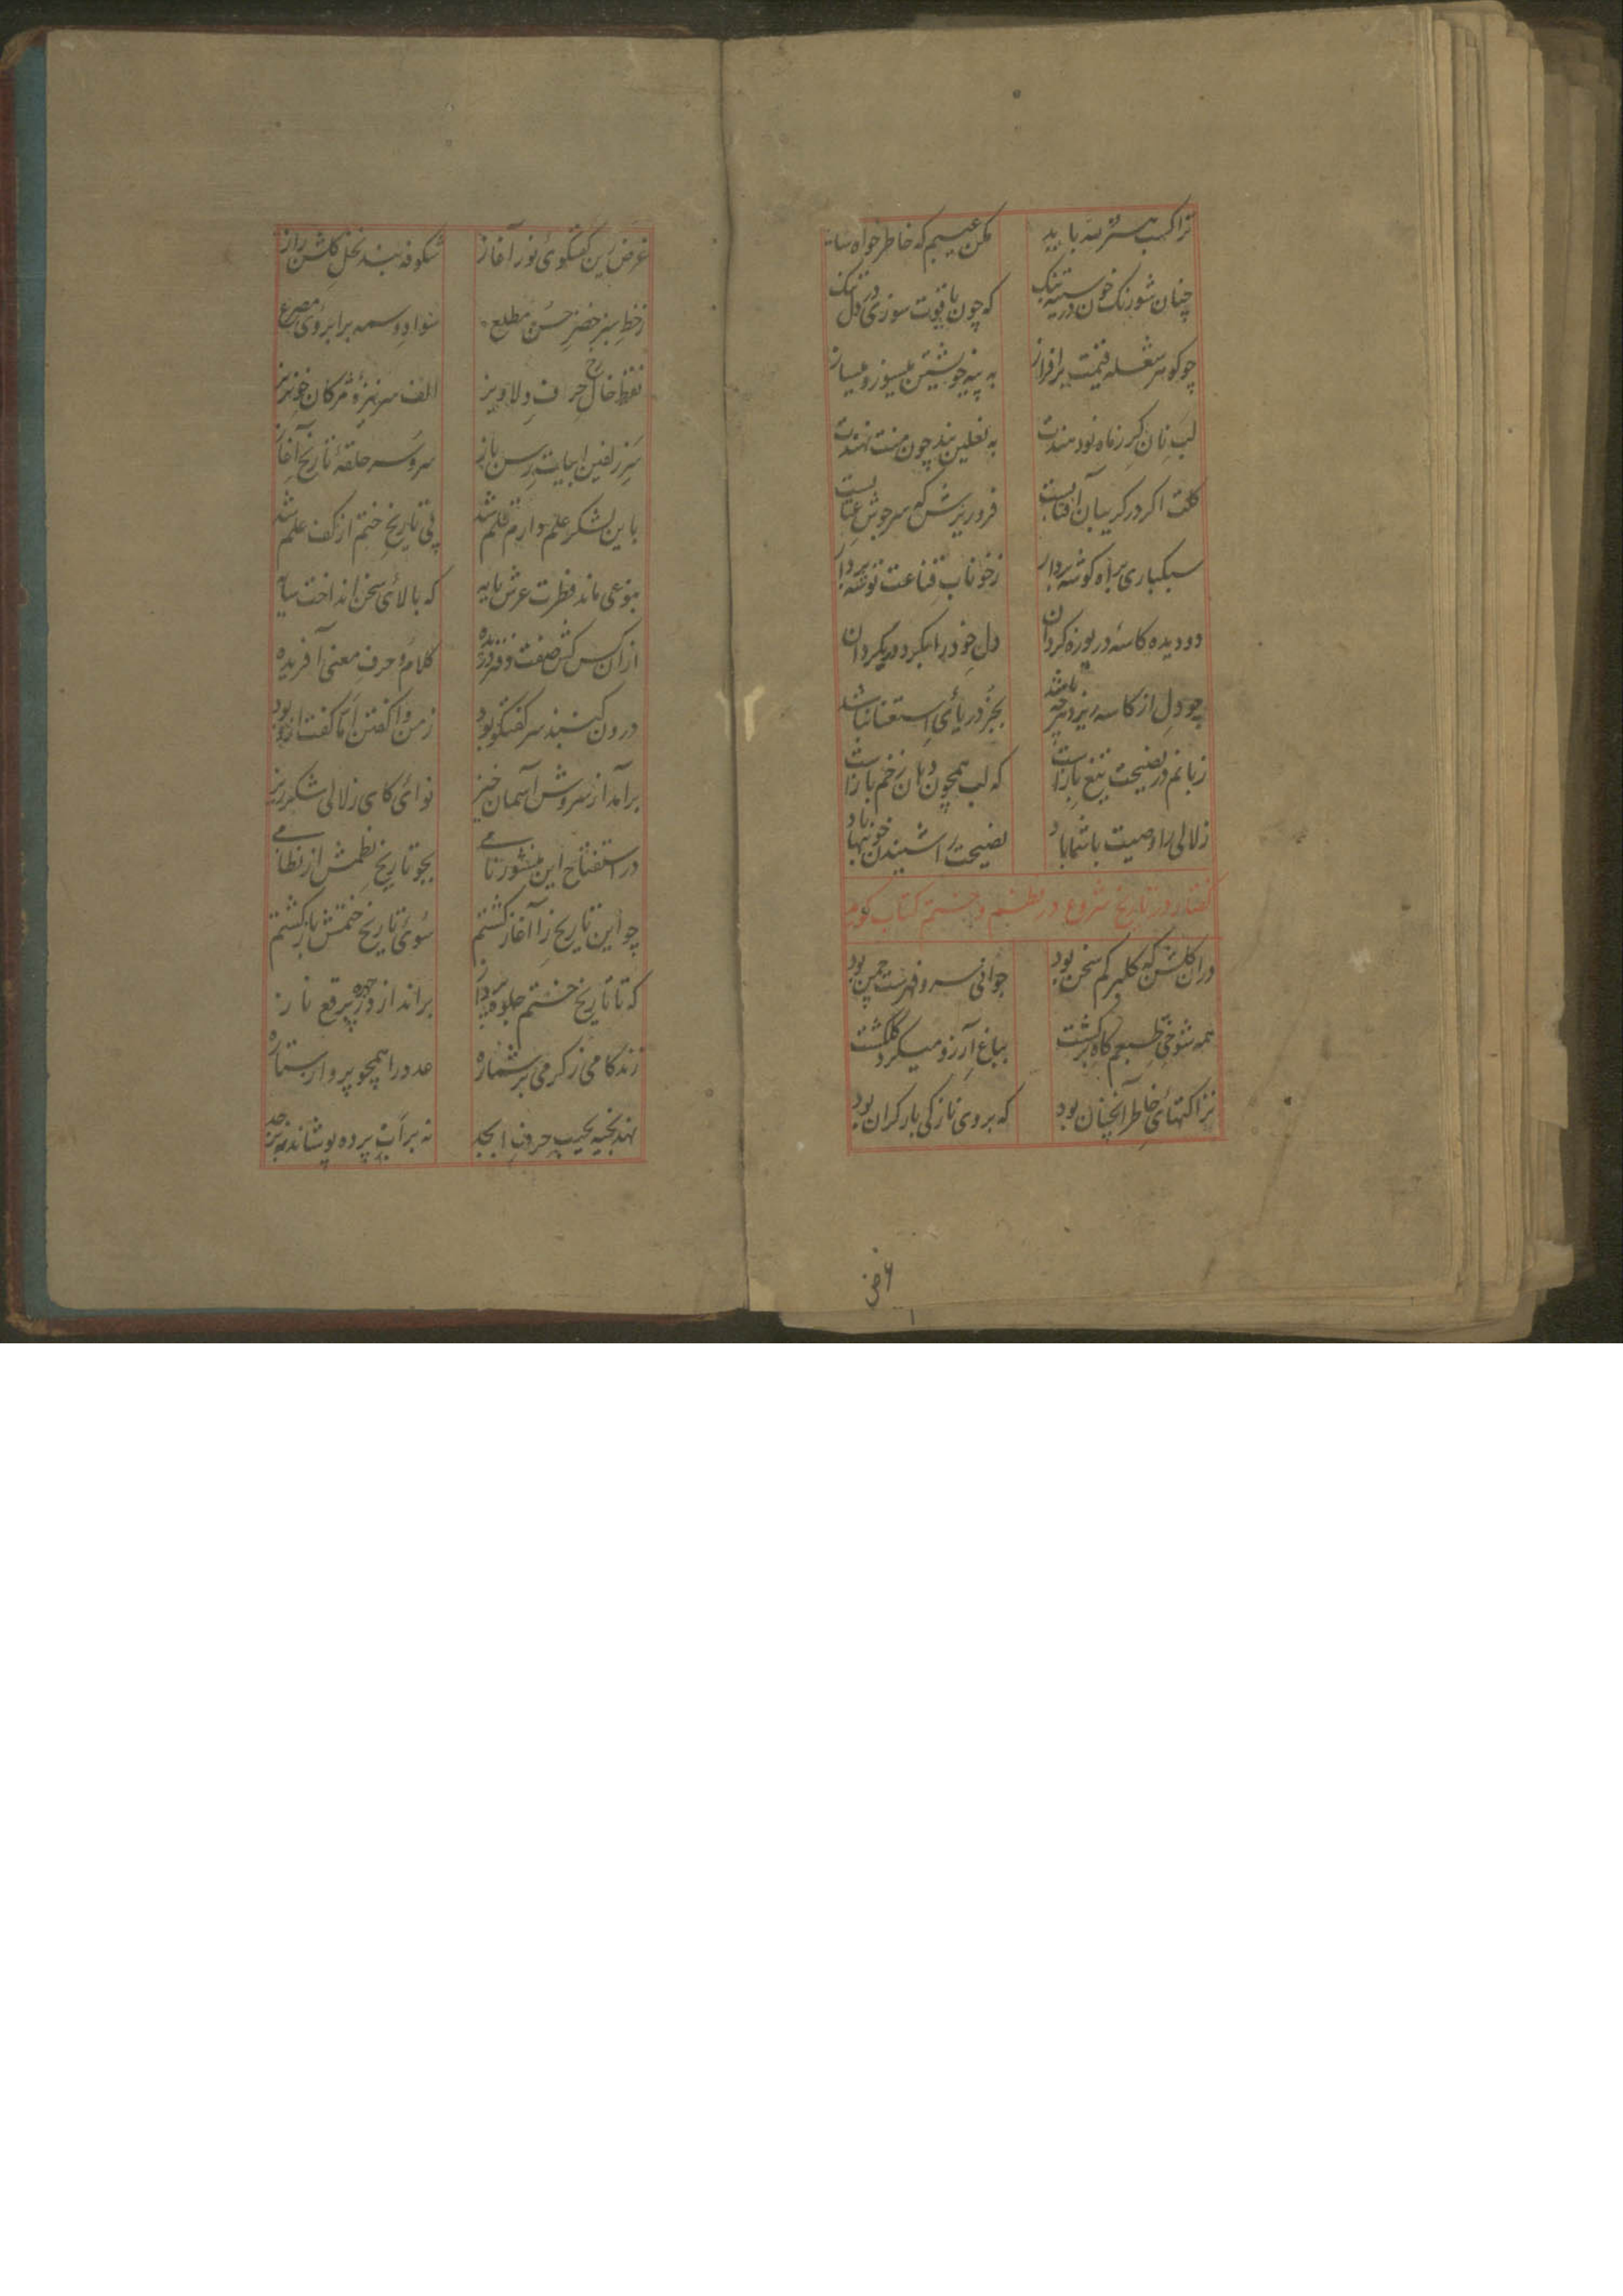 ترا کسب هنر باید
مکن عیبم که خاطر خواه
چنان شو رنگ خون در سینه تنگ
که چون یاقوت سوزی در دل سنگ
چو کوهر شعله قیمت برافراز
به پیه خویشتن میسوز و میساز
لب نان کر زماه نو دهندت
به نعلین بند چون منت نهندت
کلت اکر در کریبان آفتابست
فرو ریزش که سرجوش عتابست
سبکباری براه کوشه بردار
زخوناب قناعت توشه بردار
دو دیده کاسه دریوزه کردان
دل خود را بکرد در بکردان
چو دل از کاسه ریزد هرچه باشد
بجز دریای استغنا نباشد
زبانم در نصیحت تیغ بازاست
که لب همچون دهان زخم بازاست
زلالی را وصیت با شما باد
نصیحت را شنیدن خونبها باد
گفتار در تاریخ شروع در نظم و ختم کتاب کوید
دران کلشن که کلبرکم سخن بود
جوانی سرو فهرست چمن بود
همه شوخی طبعم کاه برکشت
بباغ آرزو میکرد کلکشت
نزاکتهای خاطر آنچنان بود
که بروی نازکی بار کران بود
غرض این کفتکوی نور آغاز
شکوفه بند نخل کلشن راز
زخط سبز خضر حسن مطلع
سواد وسمه بر ابروی مصرع
نقط خال رخ حرف دلاویز
الف سر نیزه مژکان خونریز
سر زلفین ابیات رسن باز
سروسر حلقه تاریخ آغاز
باین لشکر علم دارم قلم شد
پی تاریخ ختم از کف علم شد
بنوعی ماند فطرت عرش پایه
که بالای سخن انداخت سایه
ازان کس کش صفت
کلام و حرف معنی آفریده
درون کنبند سر کفتکو بود
زمن وا کفتن اما کفت ازو بود
برآمد از سروش آسمان خیز
نوای کای زلالی شکرریز
در استفتاح این منشور نامی
بجو تاریخ نظمش از نظامی
چو این تاریخ را آغاز کشتم
سوی تاریخ ختمش باز کشتم
که تا تاریخ ختم جلوه پرداز
براندازد ز چهره برقع ناز
زند کامی زکرمی بر شماره
عدد را همچو پروار ستاره
نهد بخیه بجیب حروف ابجد
نه بر آب پرده پوشاند